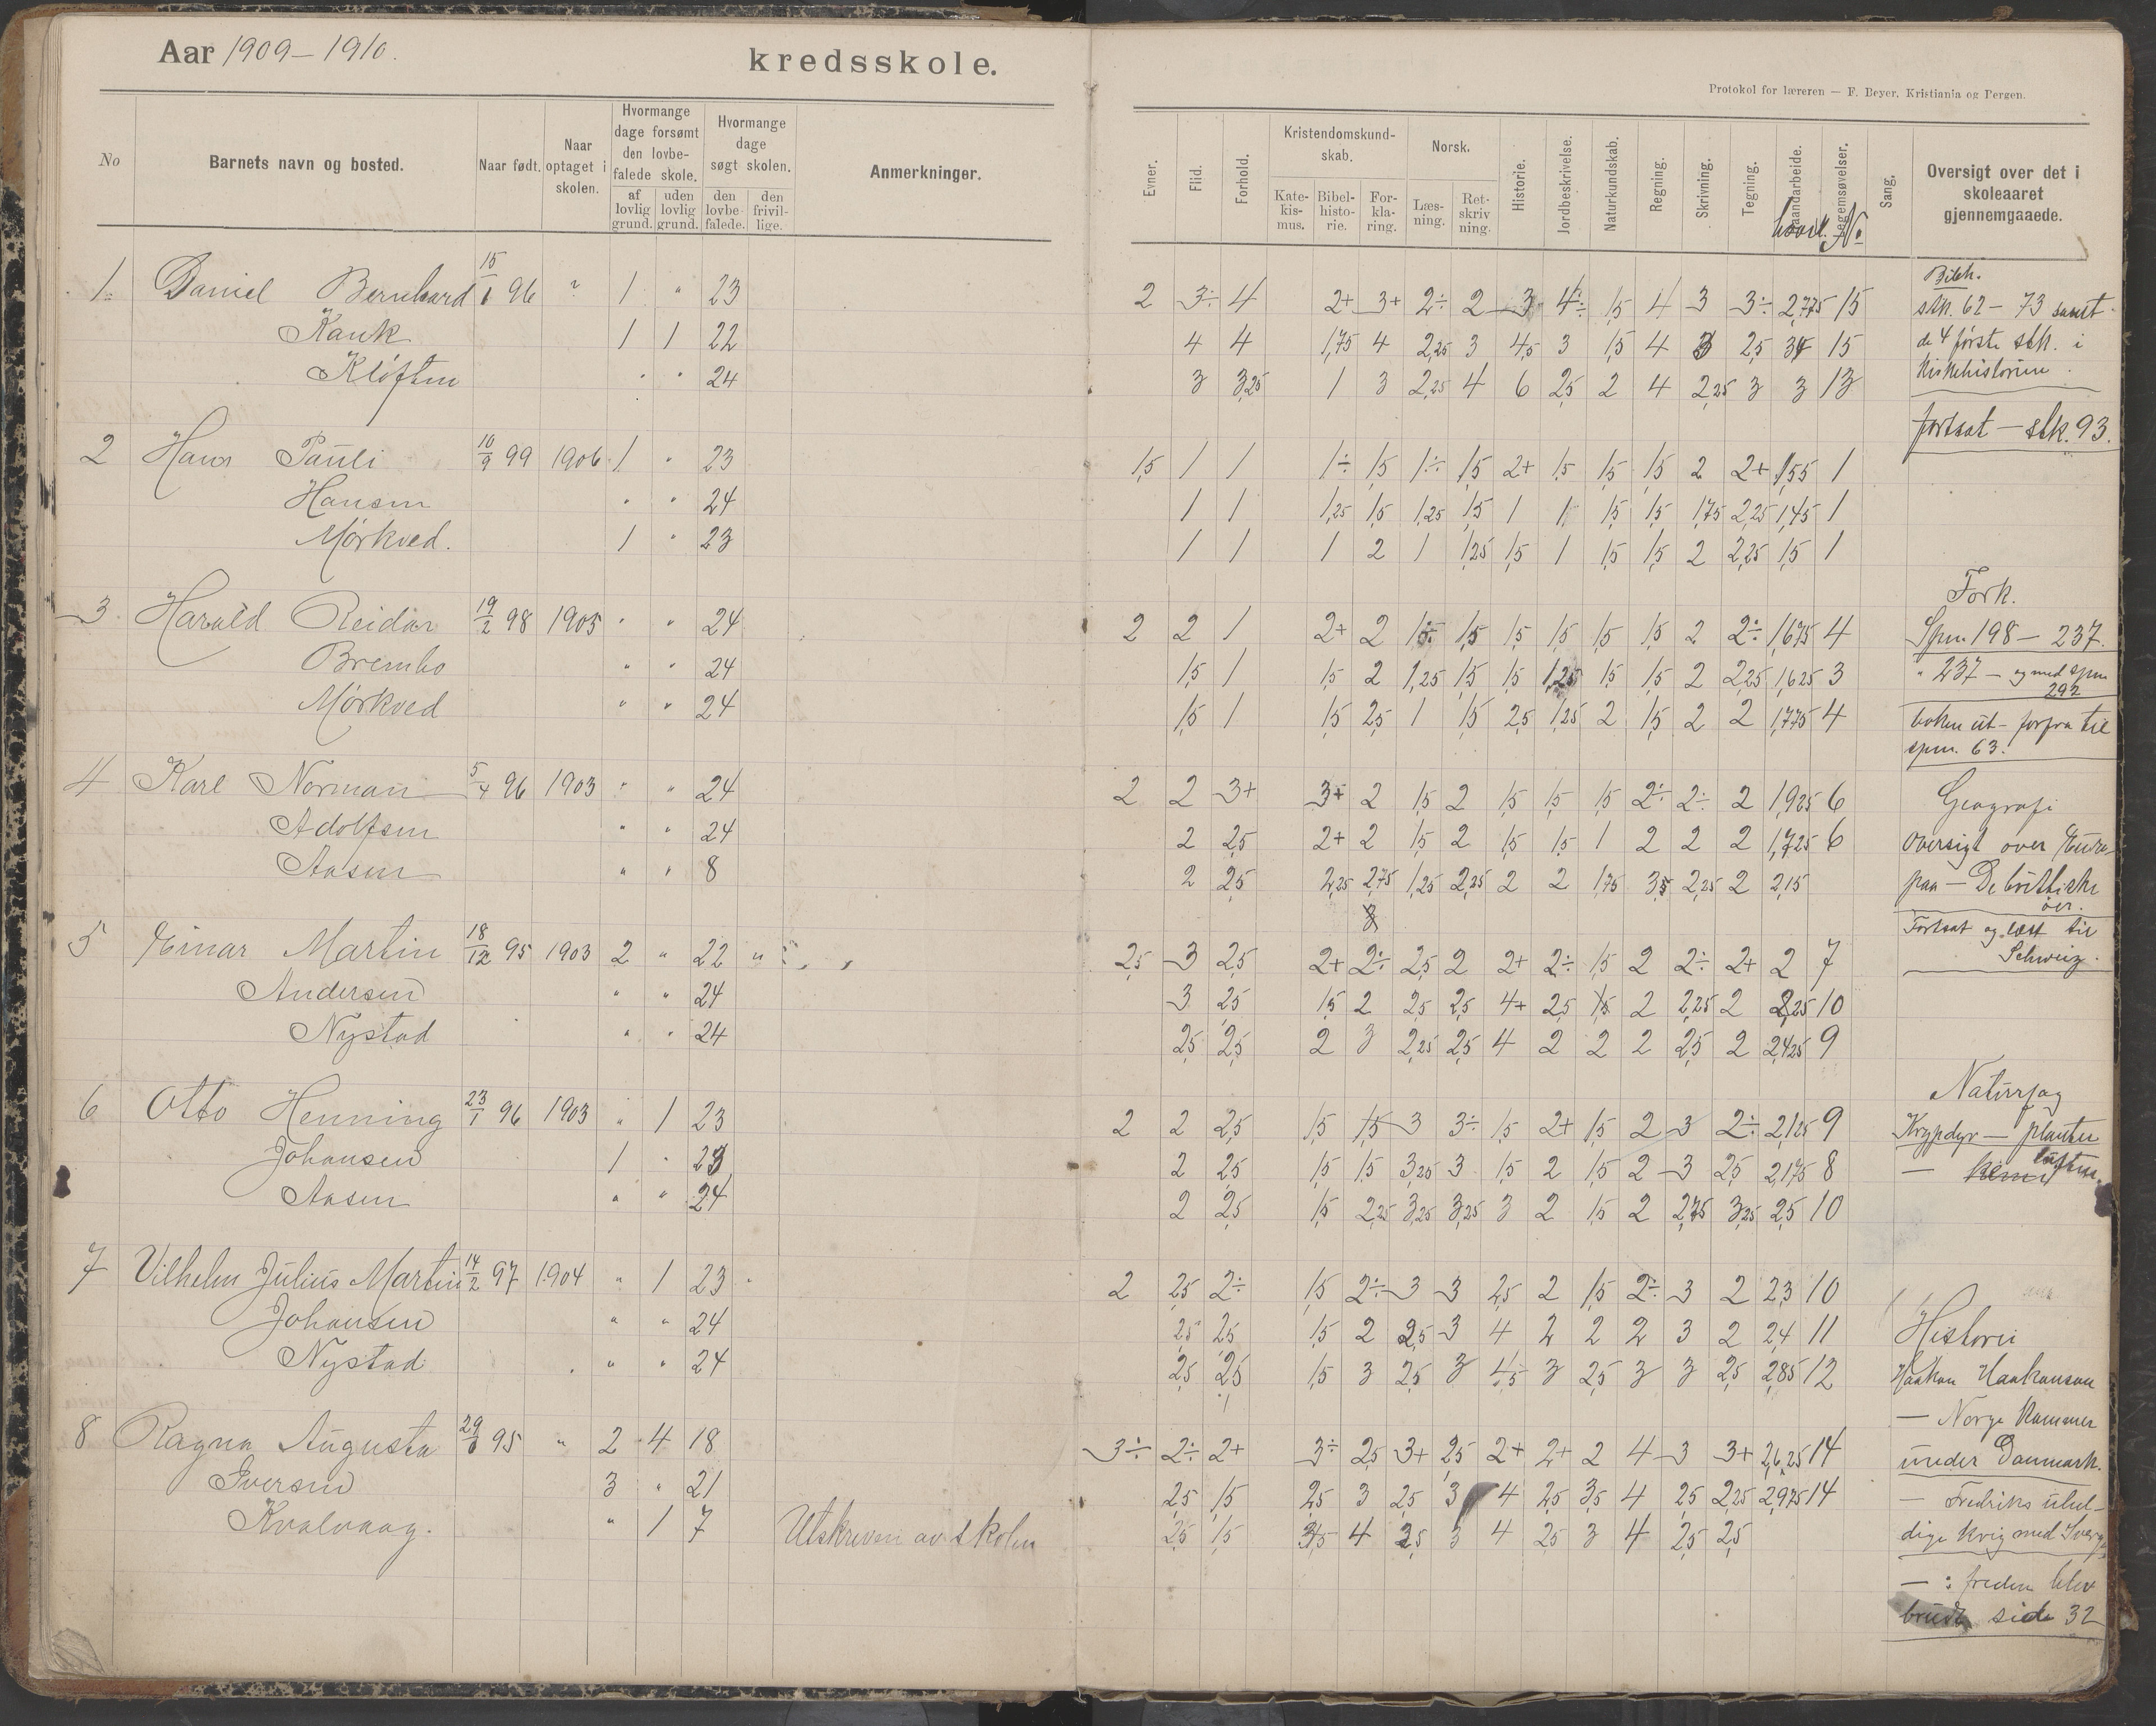 Aar 1909–1910.
kredsskole.
Protokol for læreren — F. Beyer. Kristiania og Bergen.
No
Barnets navn og bosted.
Naar født.
Naar optaget i skolen.
Hvormange dage forsømt den lovbefalede skole.
af lovlig grund.
uden lovlig grund.
Hvormange dage søgt skolen.
den lovbefalede.
den frivillige.
Anmerkninger.
Evner.
Flid.
Forhold.
Kristendomskundskab.
Katekismus.
Bibelhistorie.
Forklaring.
Norsk.
Læsning.
Retskrivning.
Historie.
Jordbeskrivelse.
Naturkundskab.
Regning.
Skrivning.
Tegning.
Haandarbeide.
Legemsøvelser.
Sang.
Oversigt over det i skoleaaret gjennemgaaede.
hovd. No
1. Daniel Bernhard 15/1 96 " 1 " 23 2 3÷ 4 2+ 3+ 2÷ 2 3 4÷ 1,5 4 3 3÷ 2,775 15
Kauk 1 1 22 4 4 1,75 4 2,25 3 4,5 3 1,5 4 3 2,5 15
Kløften " " 24 3 3,25 1 3 2,25 4 6 2,5 2 4 2,25 3 3 13
2 Hans Pauli 10/9 99 1906 1 " 23 1,5 1 1 1÷ 1,5 1÷ 1,5 2+ 1,5 1,5 1,5 2 2+ 1,55 1
Hansen " " 24 1 1 1,25 1,5 1,25 1,5 1 1 1,5 1,5 1,75 2,25 1,45 1
Mørkved. 1 " 23 1 1 1 2 1 1,25 1,5 1 1,5 1,5 2 2,25 1,5 1
3 Harald Reidar 19/2 98 1905 " " 24 2 2 1 2+ 2 1,5÷ 1,5 1,5 1,5 1,5 1,5 2 2÷ 1,675 4
Brembo " " 24 1,5 1 1,5 2 1,25 1,5 1,5 1,25 1,5 1,5 2 2,25 1,625 3
Mørkved " " 24 1,5 1 1,5 2,5 1 1,5 2,5 1,25 2 1,5 2 2 1,775 4
4 Karl Norman 5/4 96 1903 " " 24 2 2 3+ 3+ 2 1,5 2 1,5 1,5 1,5 2÷ 2÷ 2 1,925 6
Adolfsen " " 24 2 2,5 2+ 2 1,5 2 1,5 1,5 1 2 2 2 1,725 6
Aasen " " 8 2 2,5 2,25 2,75 1,25 2,25 2 2 1,75 3,5 2,25 2 2,15
5 Einar Martin 18/12 95 1903 2 " 22 " 2,5 3 2,5 2+ 2÷ 2,5 2 2+ 2÷ 1,5 2 2÷ 2+ 2 7
Andersen " " 24 3 2,5 1,5 2 2,5 2,5 4+ 2,5 1,5 2 2,25 2 2,25 10
Nystad " " 24 2,5 2,5 2 3 2,25 2,5 4 2 2 2 2,5 2 2,425 9
6 Otto Henning 23/1 96 1903 " 1 23 2 2 2,5 1,5 1,5 3 3÷ 1,5 2+ 1,5 2 3 2÷ 2,125 9
Johansen 1 " 23 2 2,5 1,5 1,5 3,25 3 1,5 2 1,5 2 3 2,5 2,175 8
Aasen " " 24 2 2,5 1,5 2,25 3,25 3,25 3 2 1,5 2 2,75 3,25 2,5 10
7 Vilhelm Julius Martin 14/2 97 1904 " 1 23 " 2 2,5 2÷ 1,5 2÷ 3 3 2,5 2 1,5 2÷ 3 2 2,3 10
Johansen " " 24 2,5 2,5 1,5 2 2,5 3 4 2 2 2 3 2 2,4 11
Nystad " " 24 2,5 2,5 1,5 3 2,5 3 4,5 3 2,5 3 3 2,5 2,85 12
8 Ragna Augusta 95 " 2 4 18 3÷ 2÷ 2+ 3÷ 2,5 3+ 2,5 2+ 2+ 2 4 3 3+ 2,625 14
Iversen 3 " 21 2,5 1,5 2,5 3 2,5 3 4 2,5 3,5 4 2,5 2,25 2,975 14
Kvalvaag. " 1 7 Utskreven av skolen 2,5 1,5 3,5 4 2,5 3 4 2,5 3 4 2,5 2,5
Bibh.
stk. 62 – 73 samt
de 4 første stk. i
kirkehistorien.
fortsat — stk. 93.
Fork.
Spm. 198 – 237.
" 237 – og med spm
292
boken ut – forfra til
spm. 63.
Geografi
Oversigt over Euro-
paa — De brittiske
øer.
Fortsat og læst til
Schweiz.
Naturfag
Krypdyr — planter
— luften.
Historie
Haakon Haakonsson
— Norge kommer
under Danmark.
— Fredriks uhel-
dige krig med Sverge
— : freden blev
brudt side 32